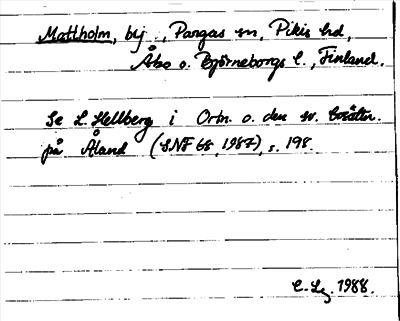 Mattholm, by., Pargas sn, Pikis hd,
Åbo o. Björneborgs l., Finland.
Se L. Hellberg i Ortn. o. den sv. bosättn.
på Åland (SNF 68, 1987), s. 198.
1988.